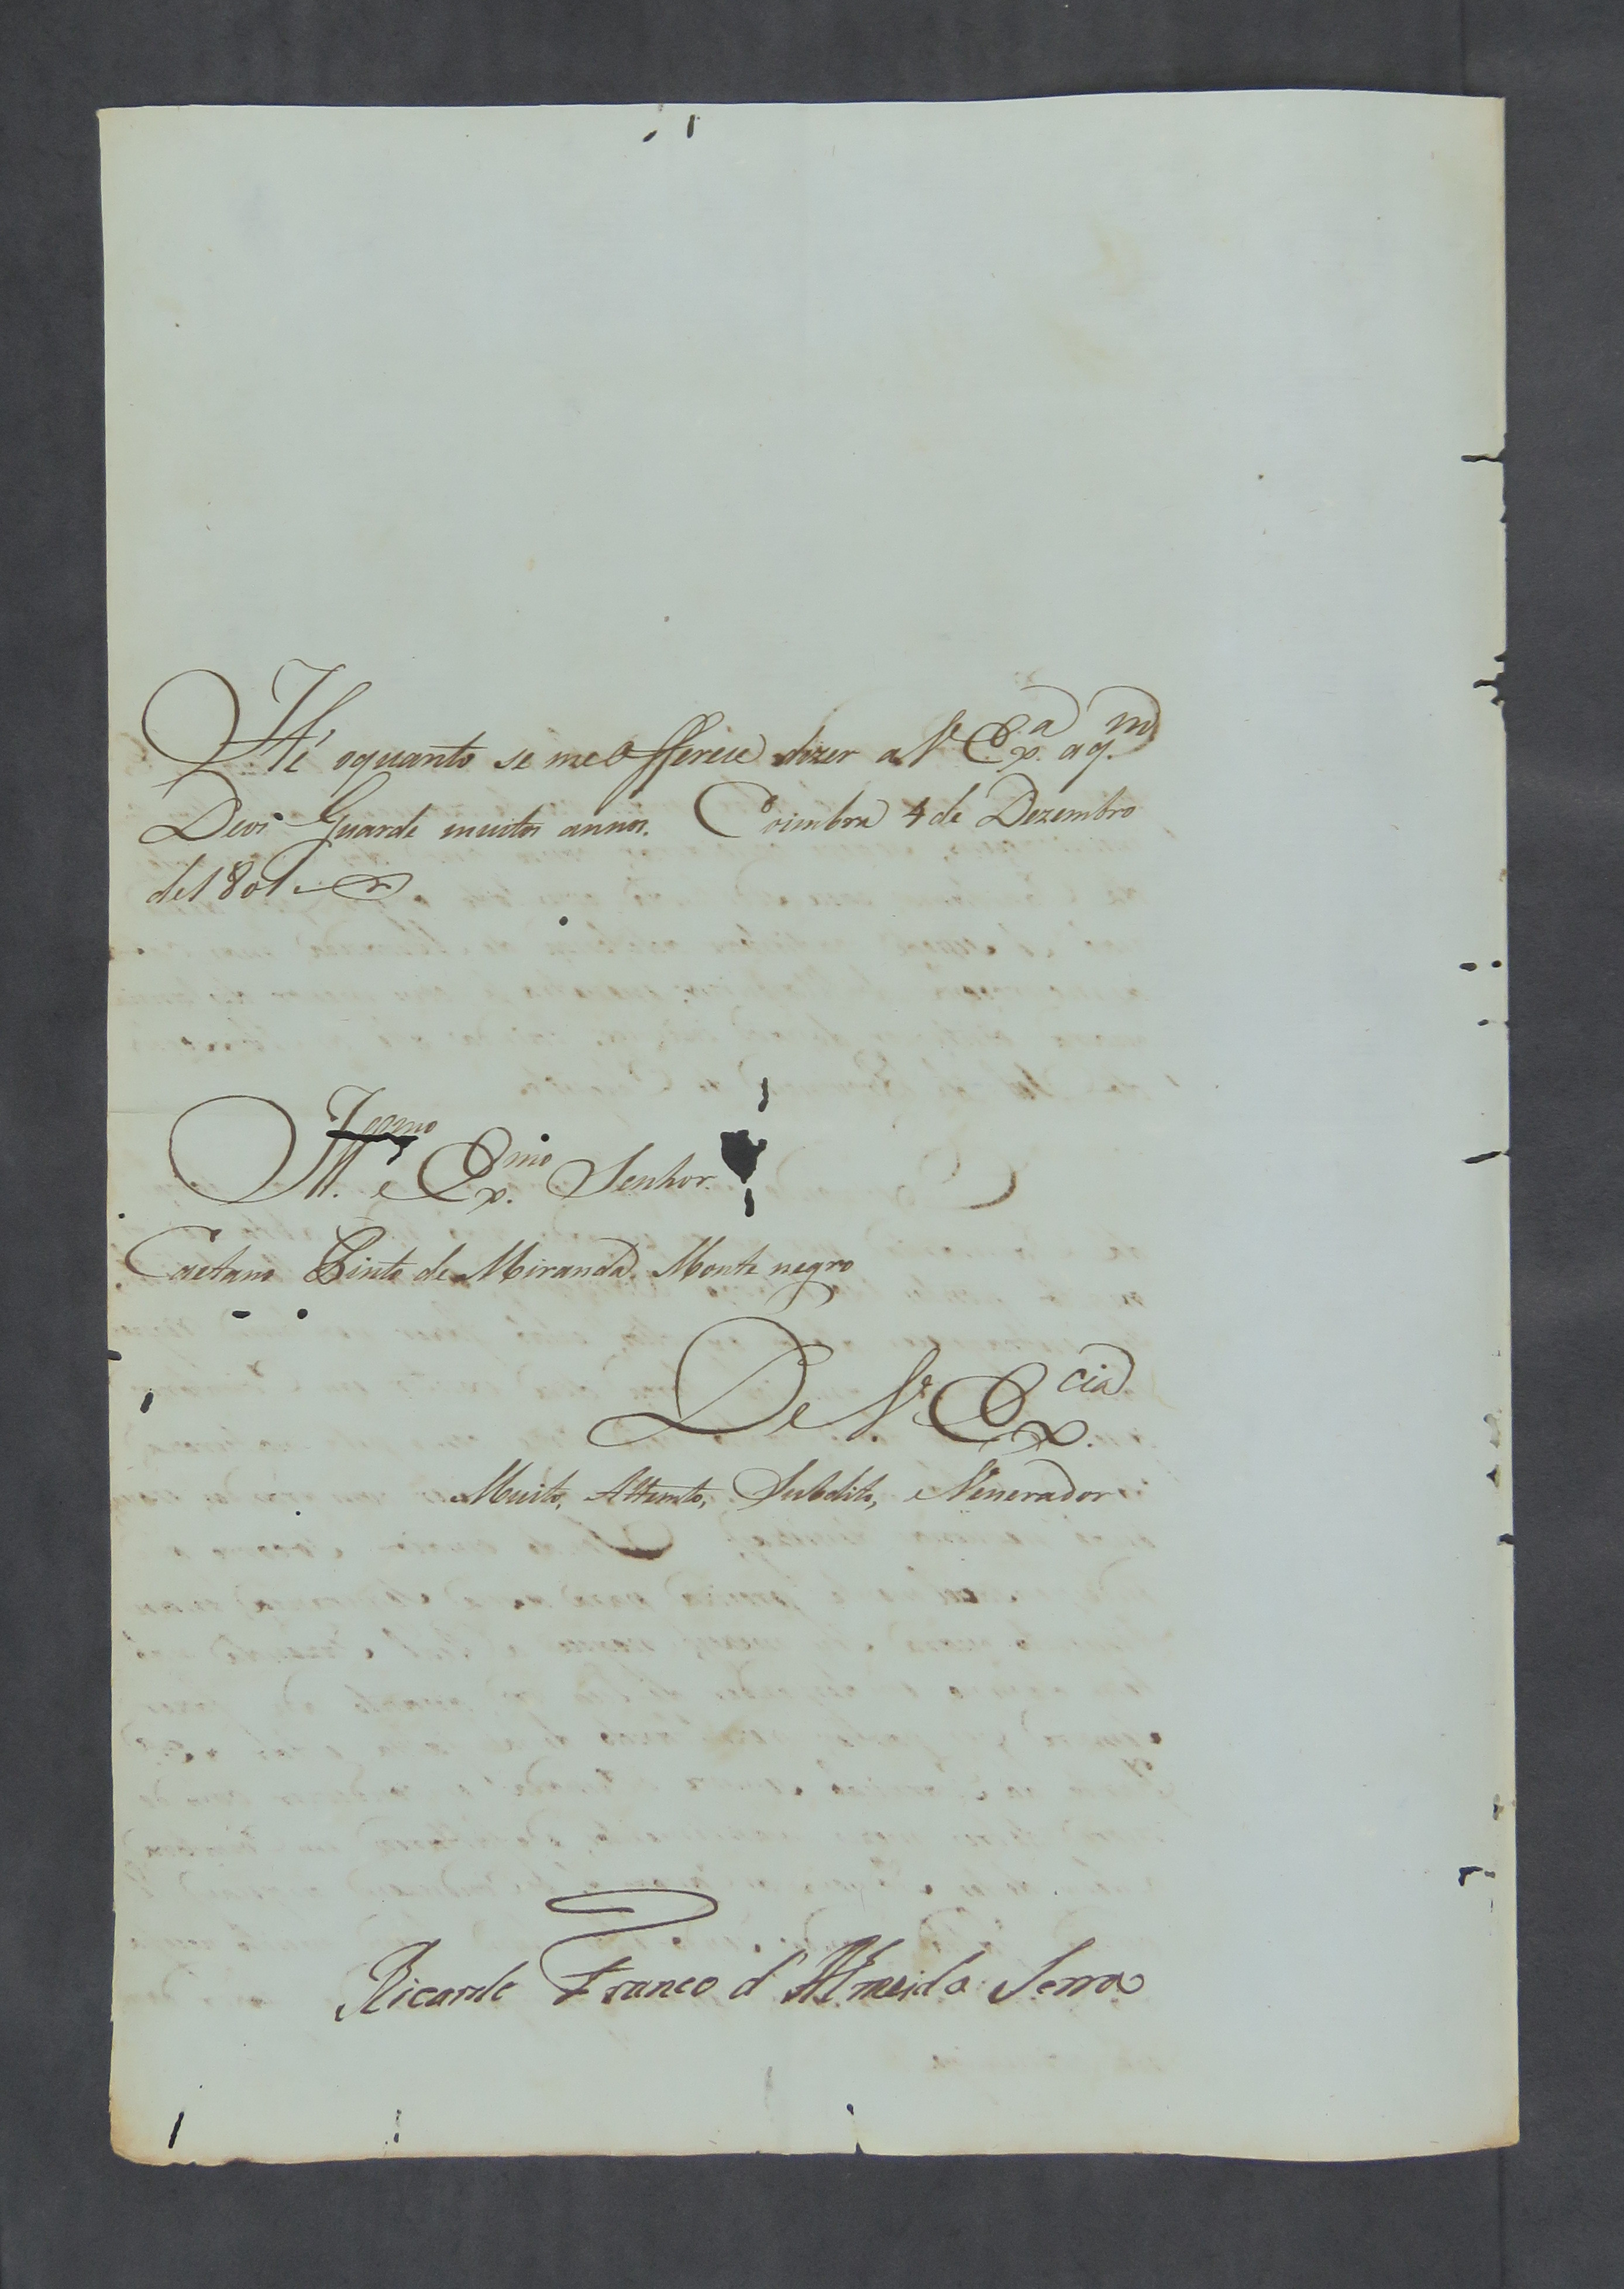 Hé oquanto se me Offerese dizer a V. Ex.a aq.m
Deos Guarde muitos annos. Coimbra 4 de Dezembro
de 1801
Ill.mo e Ex.mo Senhor
Caetano Pinto de Miranda Monte negro
De V. Ex.cia
Muito, Attento, Subdito, e Venerador
Ricardo Franco d'Almeida Serra